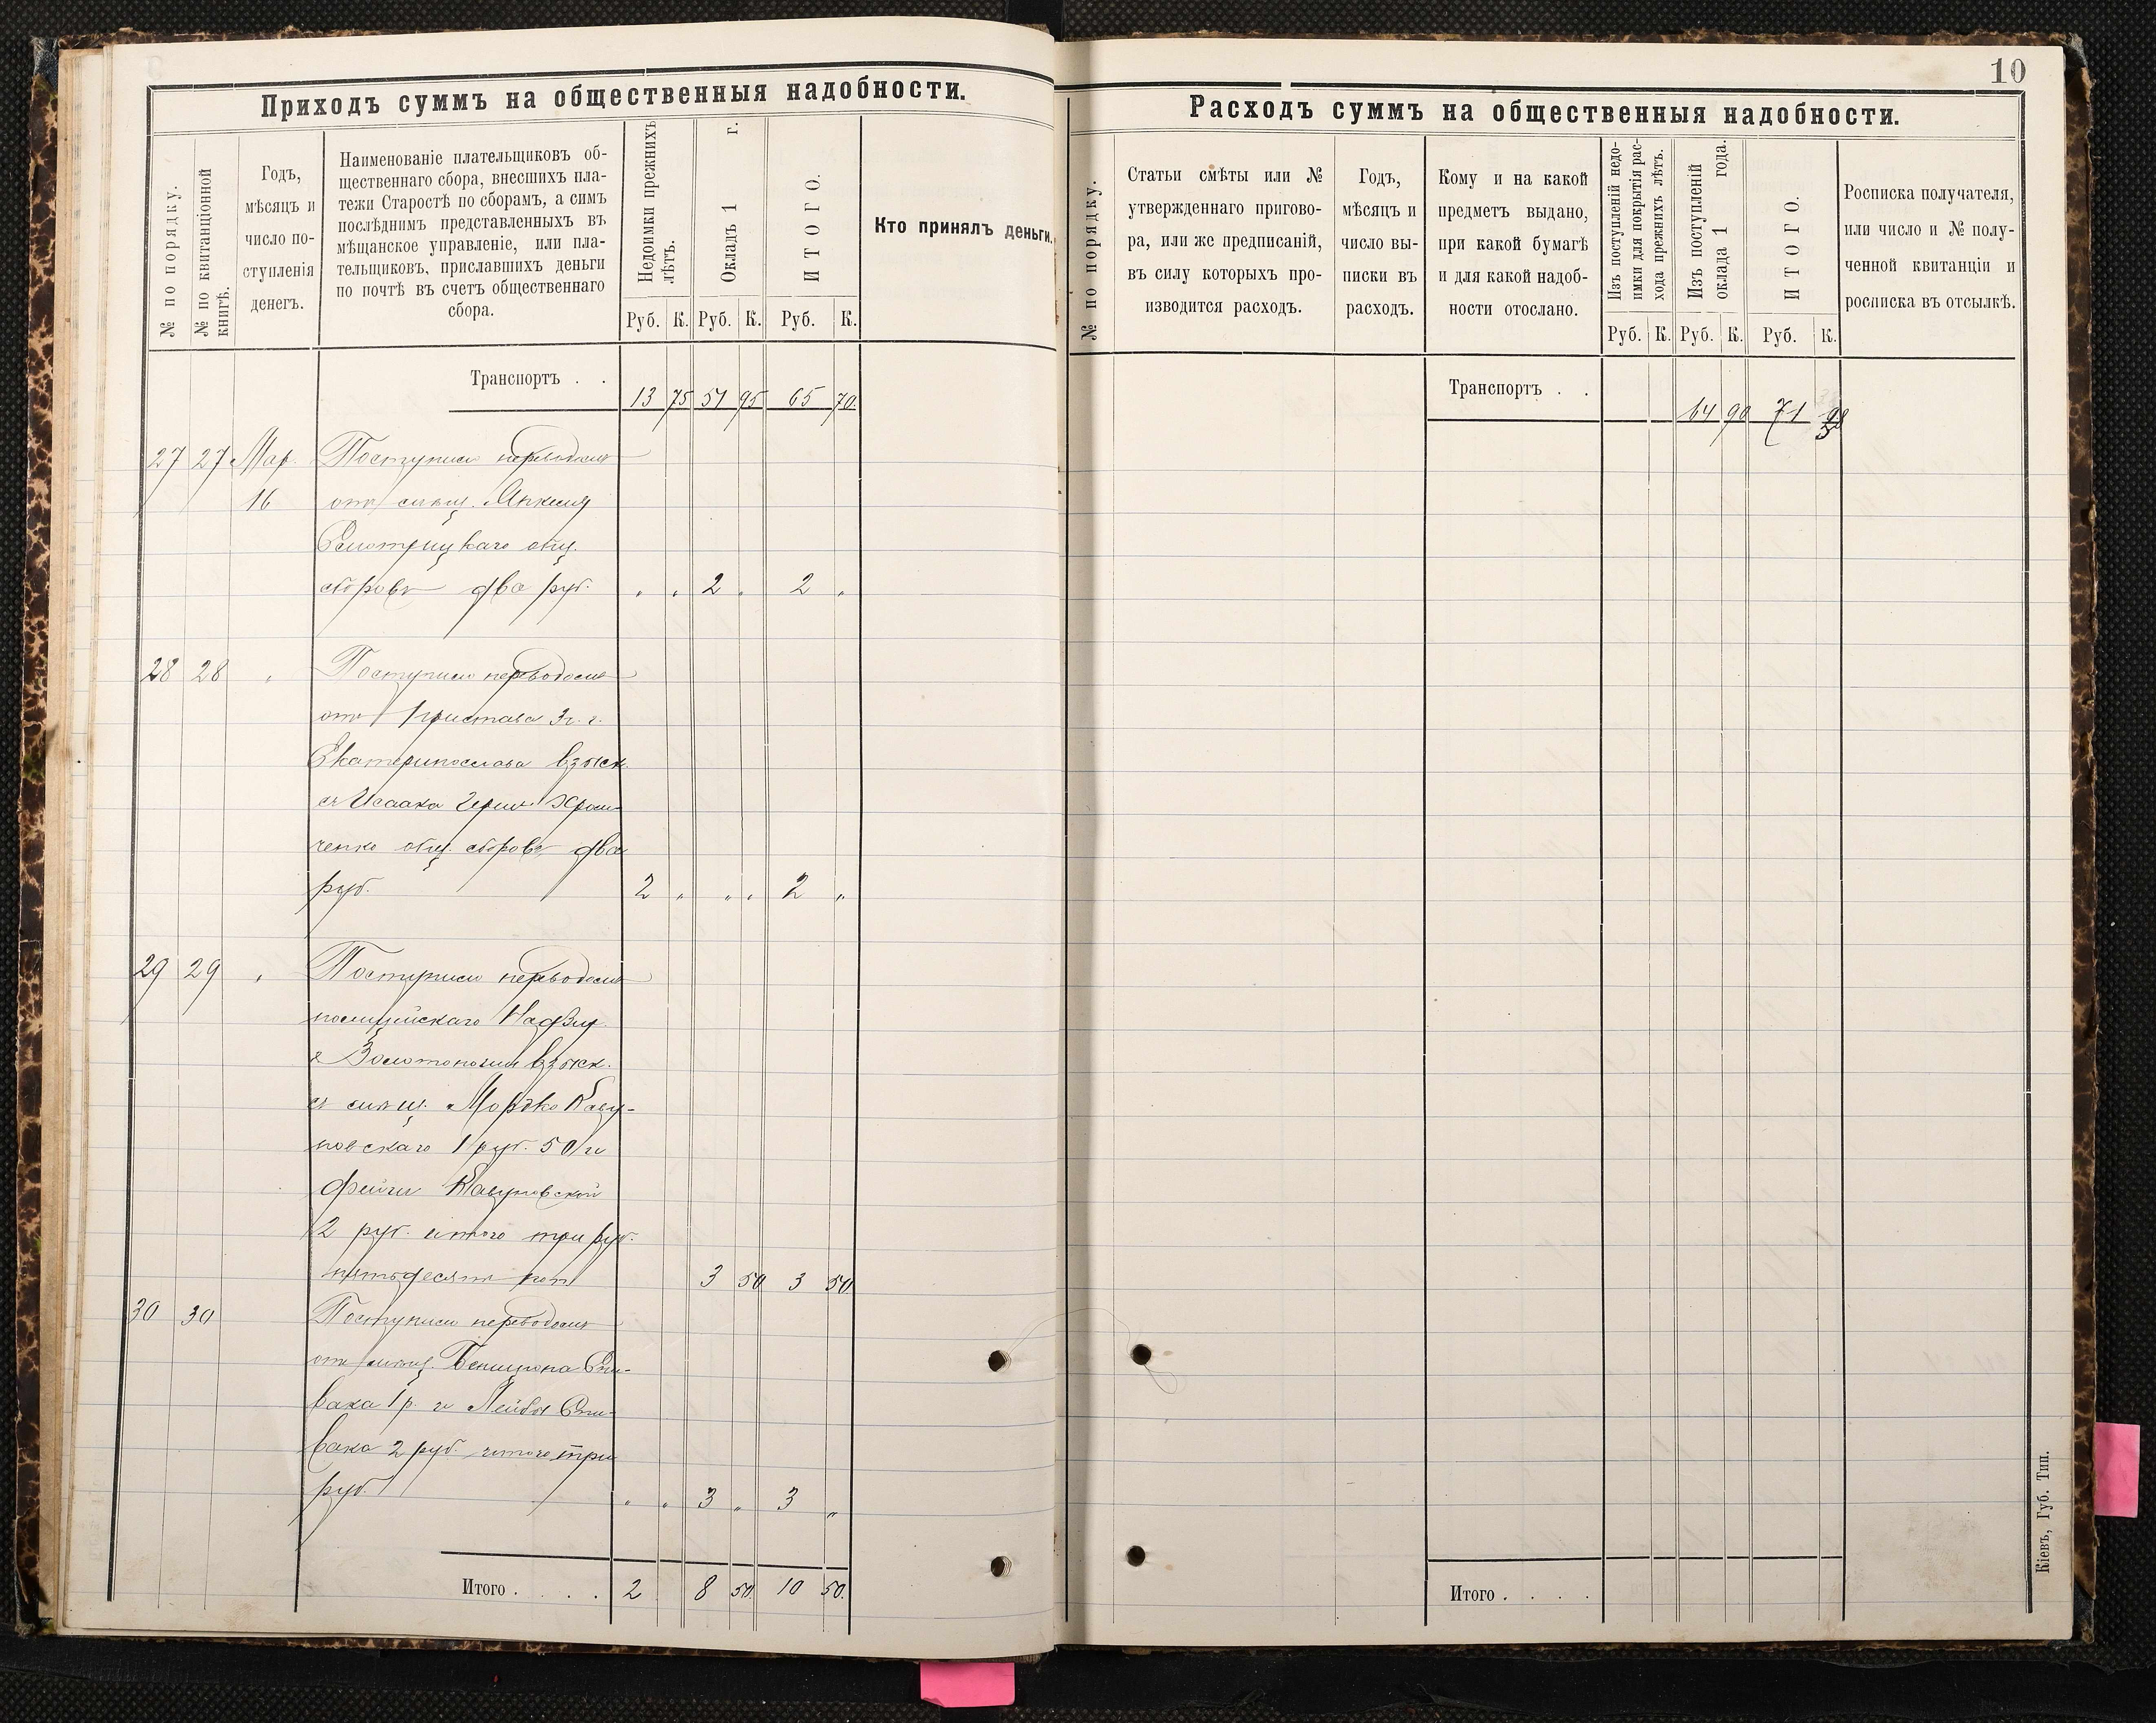 Приходъ суммъ на общественныя надобности.
№ по порядку.
№ по квитанціонной
книгѣ.
Годъ,
мѣсяцъ и
число по-
ступленія
денегъ.
Наименованіе плательщиковъ об-
щественнаго сбора, внесшихъ пла-
тежи Старостѣ по сборамъ, а симъ
послѣднимъ представленныхъ въ
мѣщанское управленіе, или пла-
тельщиковъ, приславшихъ деньги
по почтѣ въ счетъ общественнаго
сбора.
Недоимки прежнихъ
лѣтъ.
Окладъ 1 г.
ИТОГО.
Руб. К. Руб. К. Руб. К.
Кто принялъ деньги.
Транспортъ . . 13 75 51 95 65 70
27 27 Мар. Поступили переводомъ
16 отъ мѣщ. Янкеля
общ.
сборовъ два руб. " " 2 " 2 "
28 28 " Поступили переводомъ
отъ Пристава 3 ч. г.
Екатеринослава взыск.
съ Исаака
общ. сборовъ два
руб. 2 " " " 2 "
29 29 " Поступили переводомъ
полицейскаго Надзир.
г Золотоноши взыск.
съ мѣщ. Мордко Кагу-
новскаго 1 руб. 50 и
Фейги Кагуновской
2 руб. итого три руб.
пятьдесятъ коп 3 50 3 50
30 30 Поступили переводомъ
отъ мѣщ. Бенціона Спи-
вака 1 р. и Лейбы Спи-
вака 2 руб. итого три
руб. " " 3 " 3 "
Итого . . . . 2 8 50 10 50.
10
Расходъ суммъ на общественныя надобности.
№ по порядку.
Статьи смѣты или №
утвержденнаго пригово-
ра, или же предписаній,
въ силу которыхъ про-
изводится расходъ.
Годъ,
мѣсяцъ и
число вы-
писки въ
расходъ.
Кому и на какой
предметъ выдано,
при какой бумагѣ
и для какой надоб-
ности отослано.
Изъ поступленій недо-
имки для покрытія рас-
хода прежнихъ лѣтъ.
Изъ поступленій
оклада 1 года.
ИТОГО.
Руб. К. Руб. К. Руб. К.
Росписка получателя,
или число и № полу-
ченной квитанціи и
росписка въ отсылкѣ.
Транспортъ . . 64 90 71
Итого . . . .
Кіевъ, Губ. Тип.